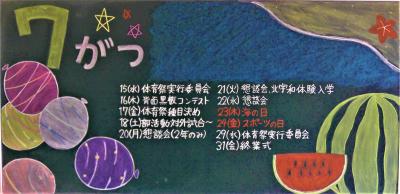 7がつ
15(水)体育祭実行委員会
16(木)背面黒板コンテスト
17(金)体育祭種目決め
18(土)部活動対外試合〜
20(月)懇談会(2年のみ)
21(火)懇談会,北宇和体験入学
22(水)懇談会
23(木)海の日
24(金)スポーツの日
29(水)体育祭実行委員会
31(金)終業式